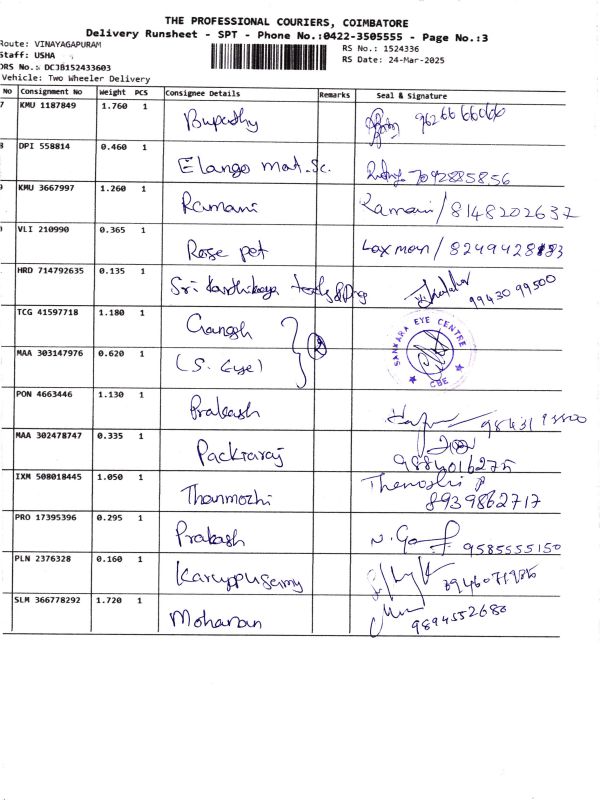 THE PROFESSIONAL COURIERS, COIMBATORE
Delivery Runsheet - SPT - Phone No.:0422-3505555 - Page No.:3
Route: VINAYAGAPURAM
Staff: USHA
DRS No.: DCJB152433603
Vehicle: Two Wheeler Delivery
RS No.: 1524336
RS Date: 24-Mar-2025
No Consignment No Weight PCS Consignee Details Remarks Seal & Signature
7 KMU 1187849 1.760 1 Bupathy 9626666066
8 DPI 558814 0.460 1 Elango mat.Sc.
9 KMU 3667997 1.260 1 Ramani Ramani / 8148202637
VLI 210990 0.365 1 Rose pet Laxman /
HRD 714792635 0.135 1 Sri Karthikeya 99430 99500
TCG 41597718 1.180 1 Ganesh
MAA 303147976 0.620 1 (S. Eye) 2 SANKARA EYE CENTRE CBE
PON 4663446 1.130 1 Prakash
MAA 302478747 0.335 1 Packiaraj 9884016275
IXM 508018445 1.050 1 Thanmozhi 8939862717
PRO 17395396 0.295 1 Prakash 9585555150
PLN 2376328 0.160 1 Karuppusamy
SLM 366778292 1.720 1 Mohanan 9894552680